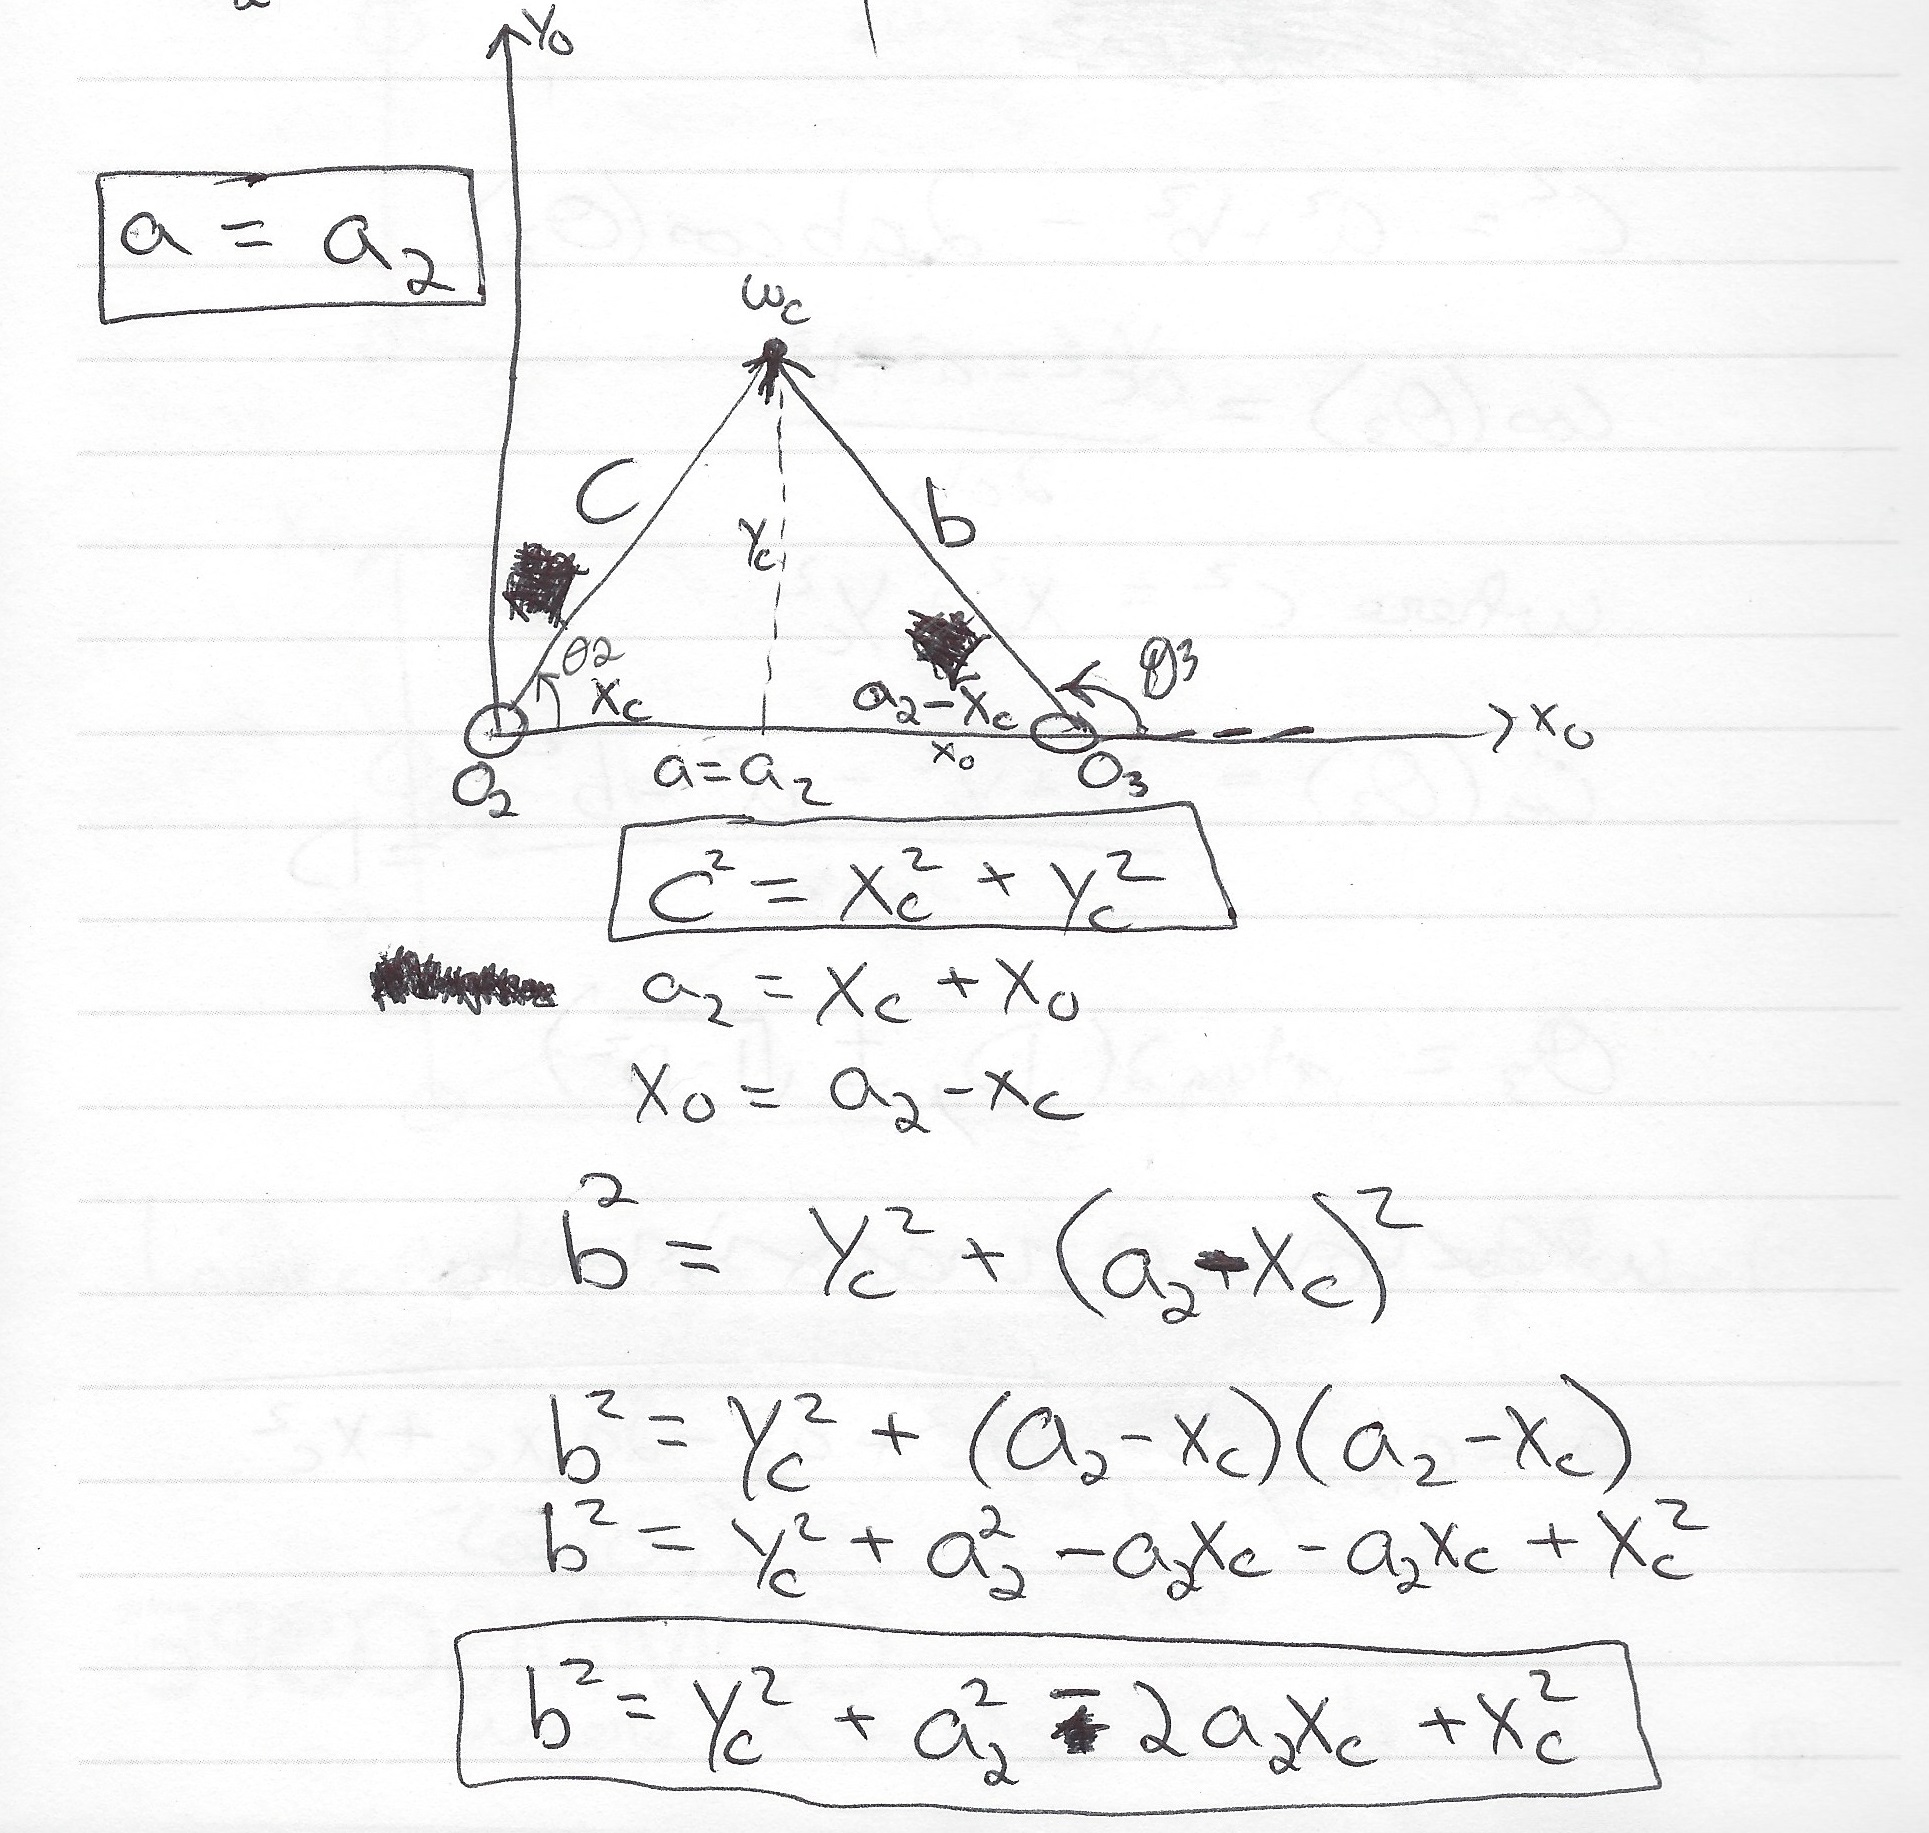 Y₀
a = a₂
ωc
C
b
Yc
θ2
Xc
a₂-Xc
θ3
X₀
O₂
a=a₂
X₀
O₃
C² = Xc² + Yc²
a₂ = Xc + X₀
X₀ = a₂ - Xc
b² = Yc² + (a₂-Xc)²
b² = Yc² + (a₂-Xc)(a₂-Xc)
b² = Yc² + a₂² - a₂Xc - a₂Xc + Xc²
b² = Yc² + a₂² - 2a₂Xc + Xc²